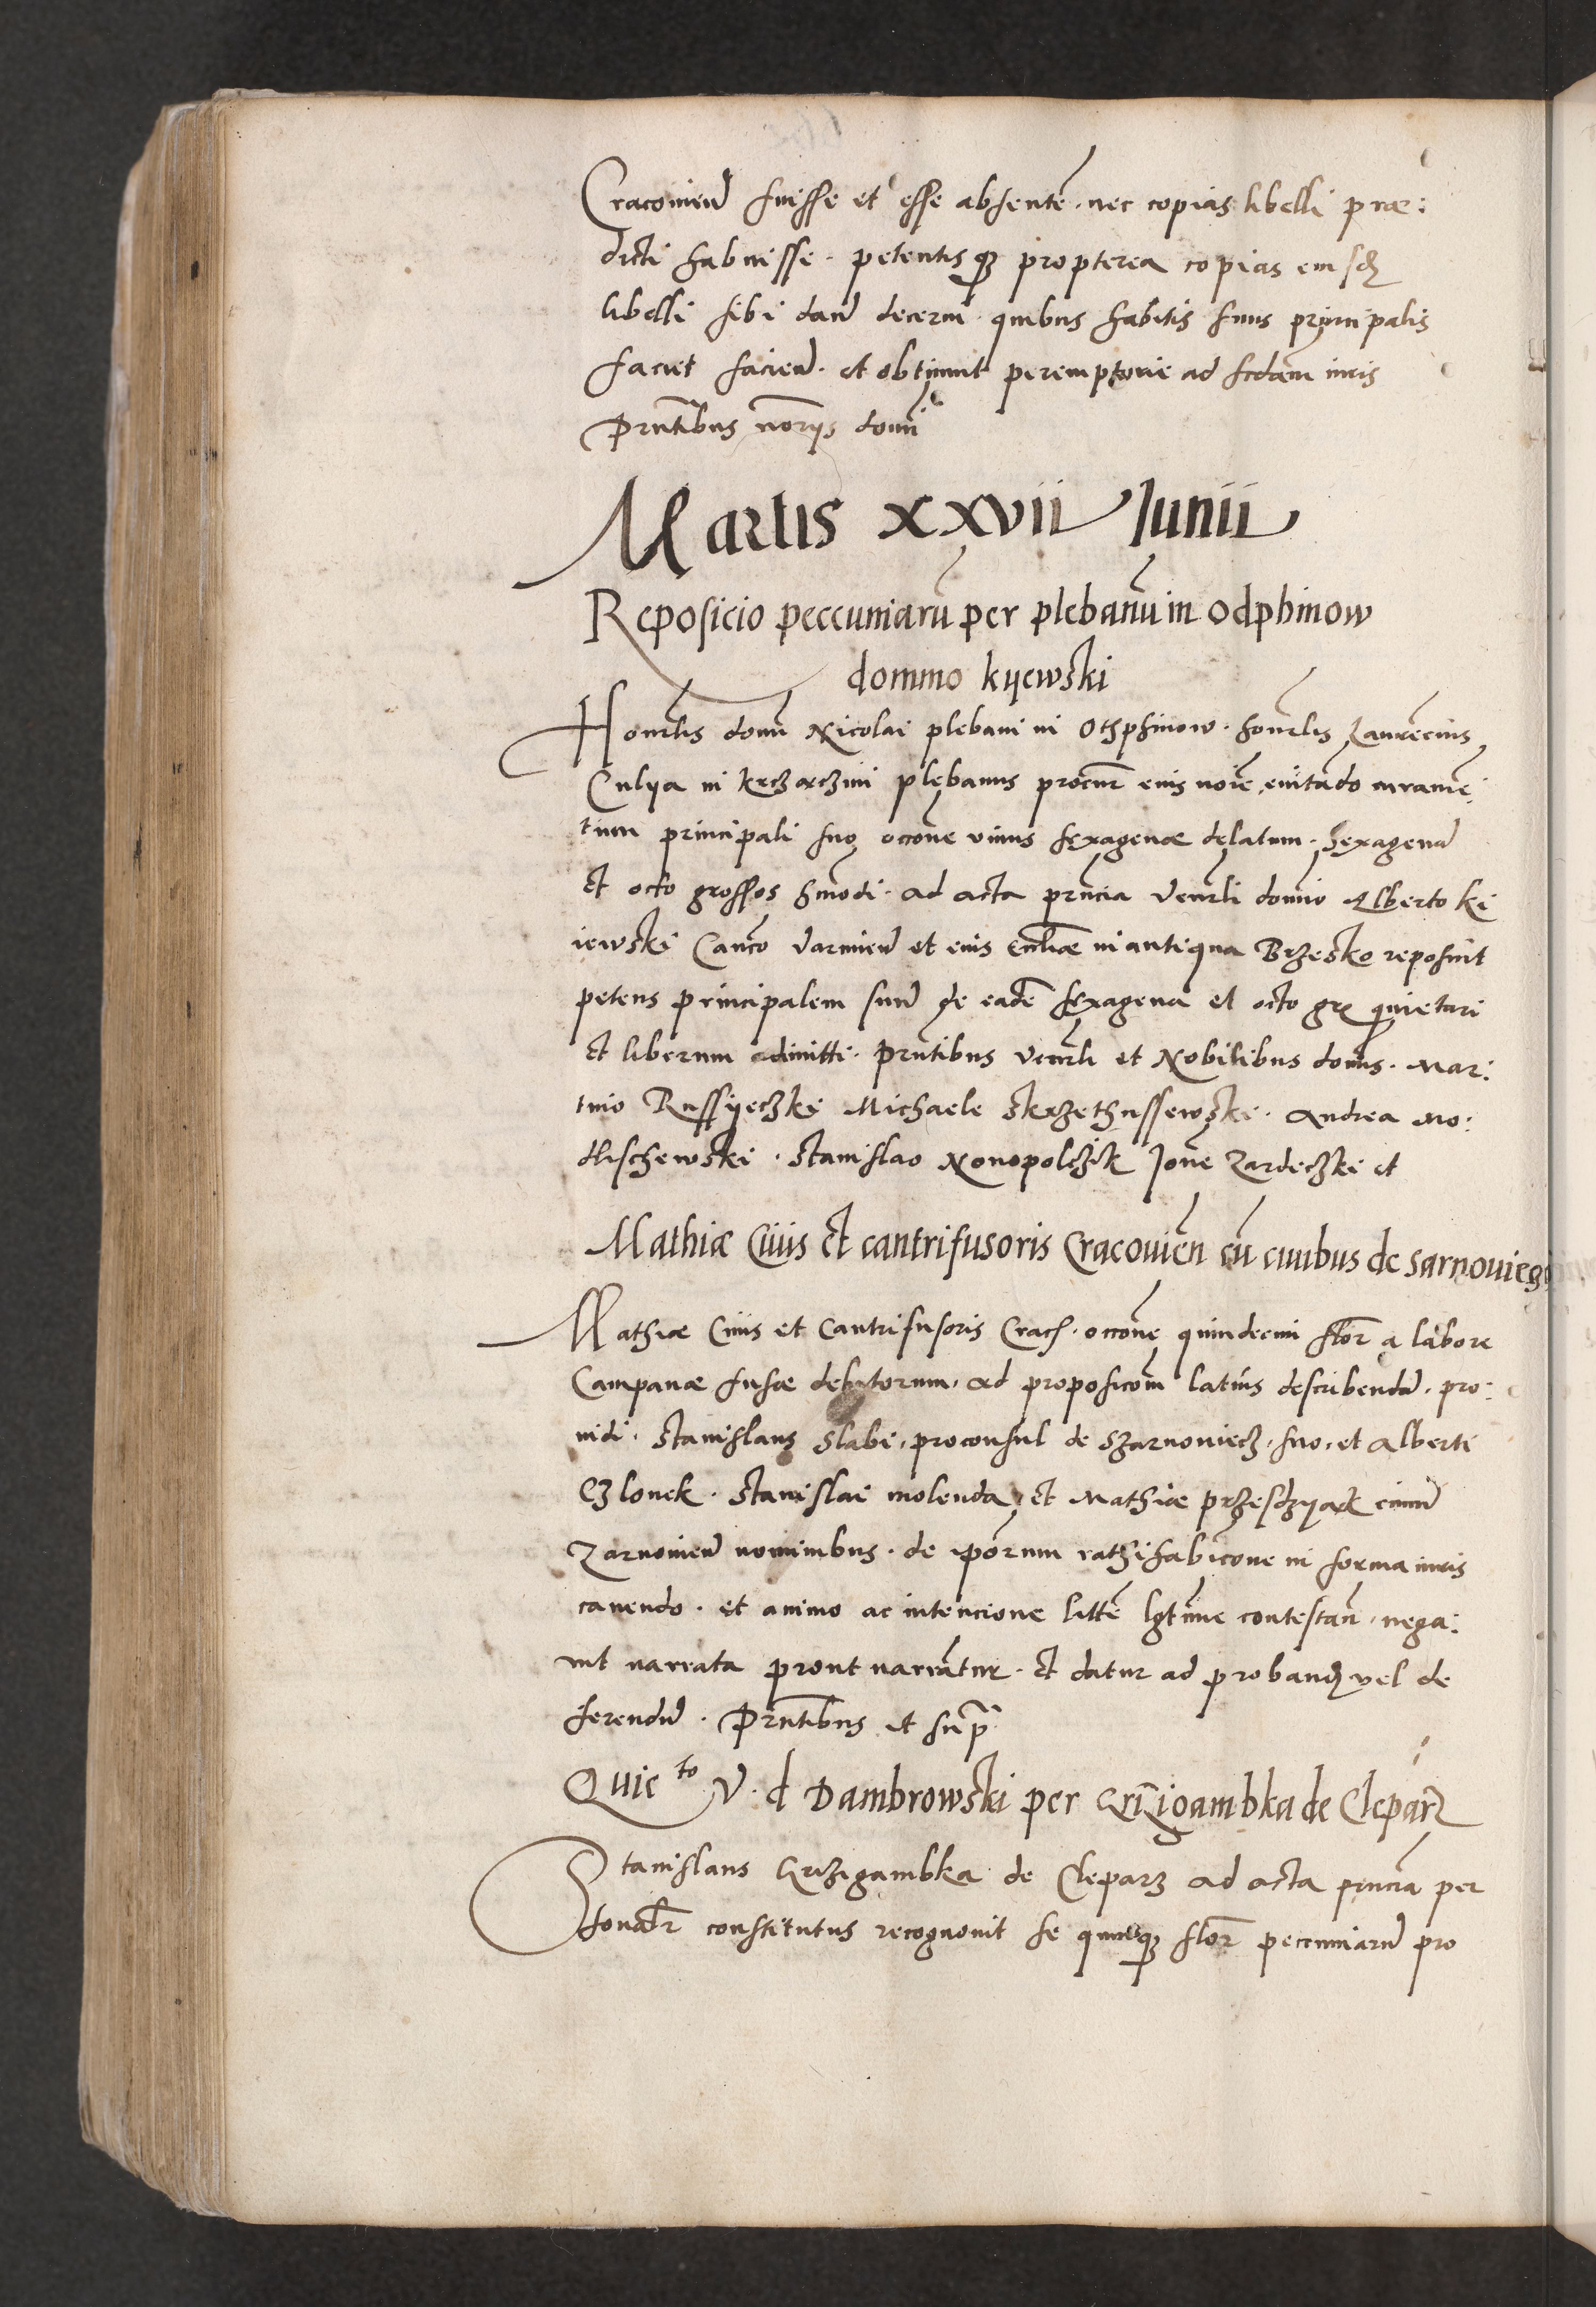 Cracovien̄ fuisse et esse absentē. nec copias libelli præ:
dicti habuisse. petentisq3 propterea copias eiusd̄
libelli sibi dan̄ decerni. quibus habitis suus principalis
faciet facien̄. et obtinuit peremptorie ad scdam iuris
Prntibus noriis domi
Martis xxvii Iunii
Reposicio peccuniarū per plebanū in Odphinow
domino kyewski
Honrlis domi Nicolai plebani in Othphinow. honrlis Laurēcius
Culya in krczarczini plebanus procur̄ eius noīe, evitādo iuramē:
tum principali suo occōne unius sexagenæ delatum. Sexagenā
et octo grossos hmōdi. ad acta prn̄cia Venrli domīo Alberto ki
iewski Canco Varmien̄ et eius Eccliæ in antiqua Brzesko reposuit
petens principalem suū de eadē sexagena et octo gr̄ quietari
et liberum admitti. Prntibus Venrli et Nobilibus domīs. Mar:
tino Russyeczki Michaele Skrzethussewski. Andrea Mo:
dlischewski. Stanislao Nonopolczik Joāne Zardeczki et
Mathiæ Civis et cantrifusoris Cracovien̄ cū civibus de Sarnoviecz
Mathiæ Civis et Cantrifusoris Crach. occōne quindecim flor̄ a labore
Campanæ fusæ debitorum. ad proposicōm latius describendā. pro:
vidi. Stanislaus Slabi, proconsul de Szarnoviecz. suo. et Alberti
Czlonek. Stanislai molenda, et Mathiæ przesdzyack civiū
Zarnovien̄ nominibus. de ipōrum rathihabicōne in forma iuris
cavendo. et animo ac intencione littē lgtīme contestan̄. nega:
vit narrata prout narrātur. et datur ad proband̄ vel de
ferendū. Prntibus ut supra
Quicto V. d Dambrowski per Krziʒigambka de Cleparz
Stanislaus Krzizigambka de Cleparz ad acta prn̄cia per
sonalr̄ constitutus recognovit se quinq3 flor̄ peccuniarū pro